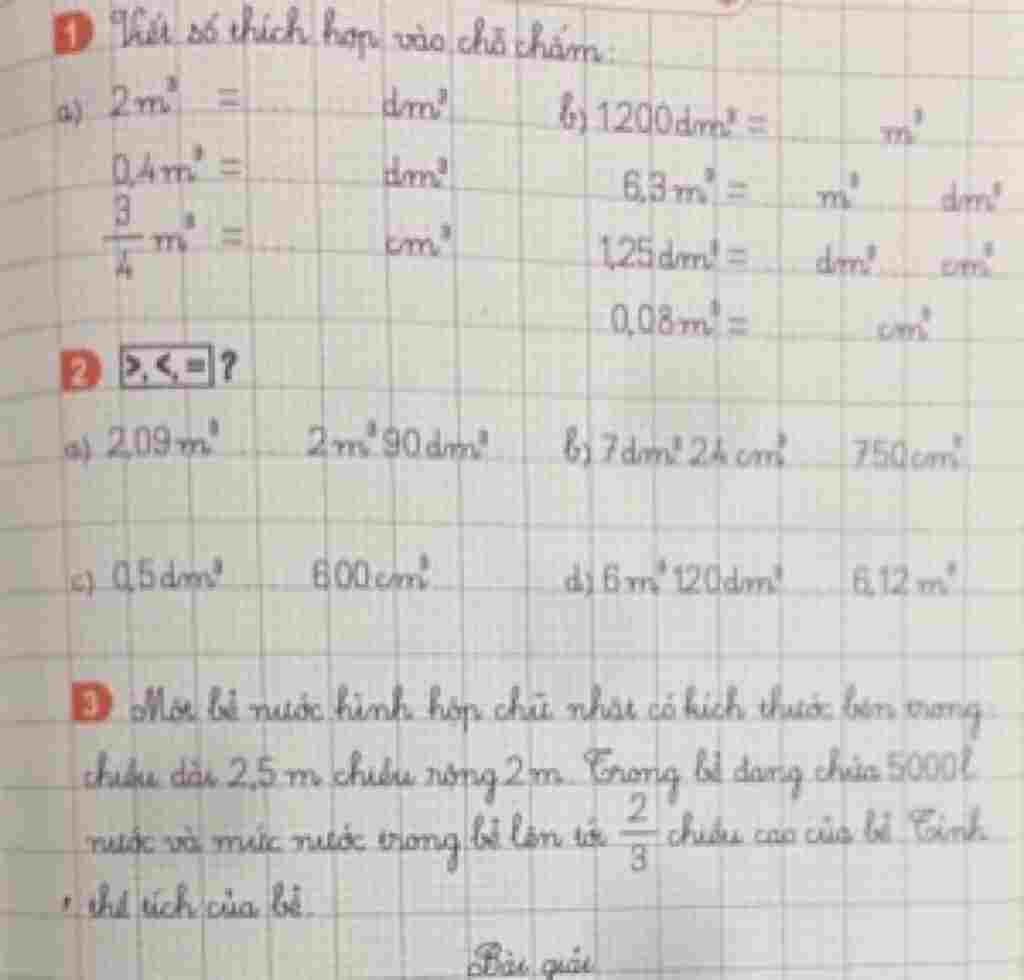 1 Viết số thích hợp vào chỗ chấm:
a) 2m³ = ... dm³ b) 1200dm³ = ... m³
0,4m³ = ... dm³ 6,3m³ = ... m³ ... dm³
3/4 m³ = ... cm³ 1,25dm³ = ... dm³ ... cm³
0,08m³ = ... cm³
2 >, <, = ?
a) 2,09m³ ... 2m³ 90dm³ b) 7dm³ 24cm³ ... 750cm³
c) 0,5dm³ ... 600cm³ d) 6m³ 120dm³ ... 6,12m³
3 Một bể nước hình hộp chữ nhật có kích thước bên trong:
chiều dài 2,5m chiều rộng 2m. Trong bể đang chứa 5000l
nước và mức nước trong bể lên tới 2/3 chiều cao của bể. Tính
thể tích của bể.
Bài giải